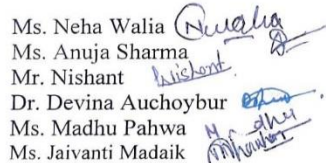 Ms. Neha Walia
Ms. Anuja Sharma
Mr. Nishant Nishant
Dr. Devina Auchoybur
Ms. Madhu Pahwa
Ms. Jaivanti Madaik